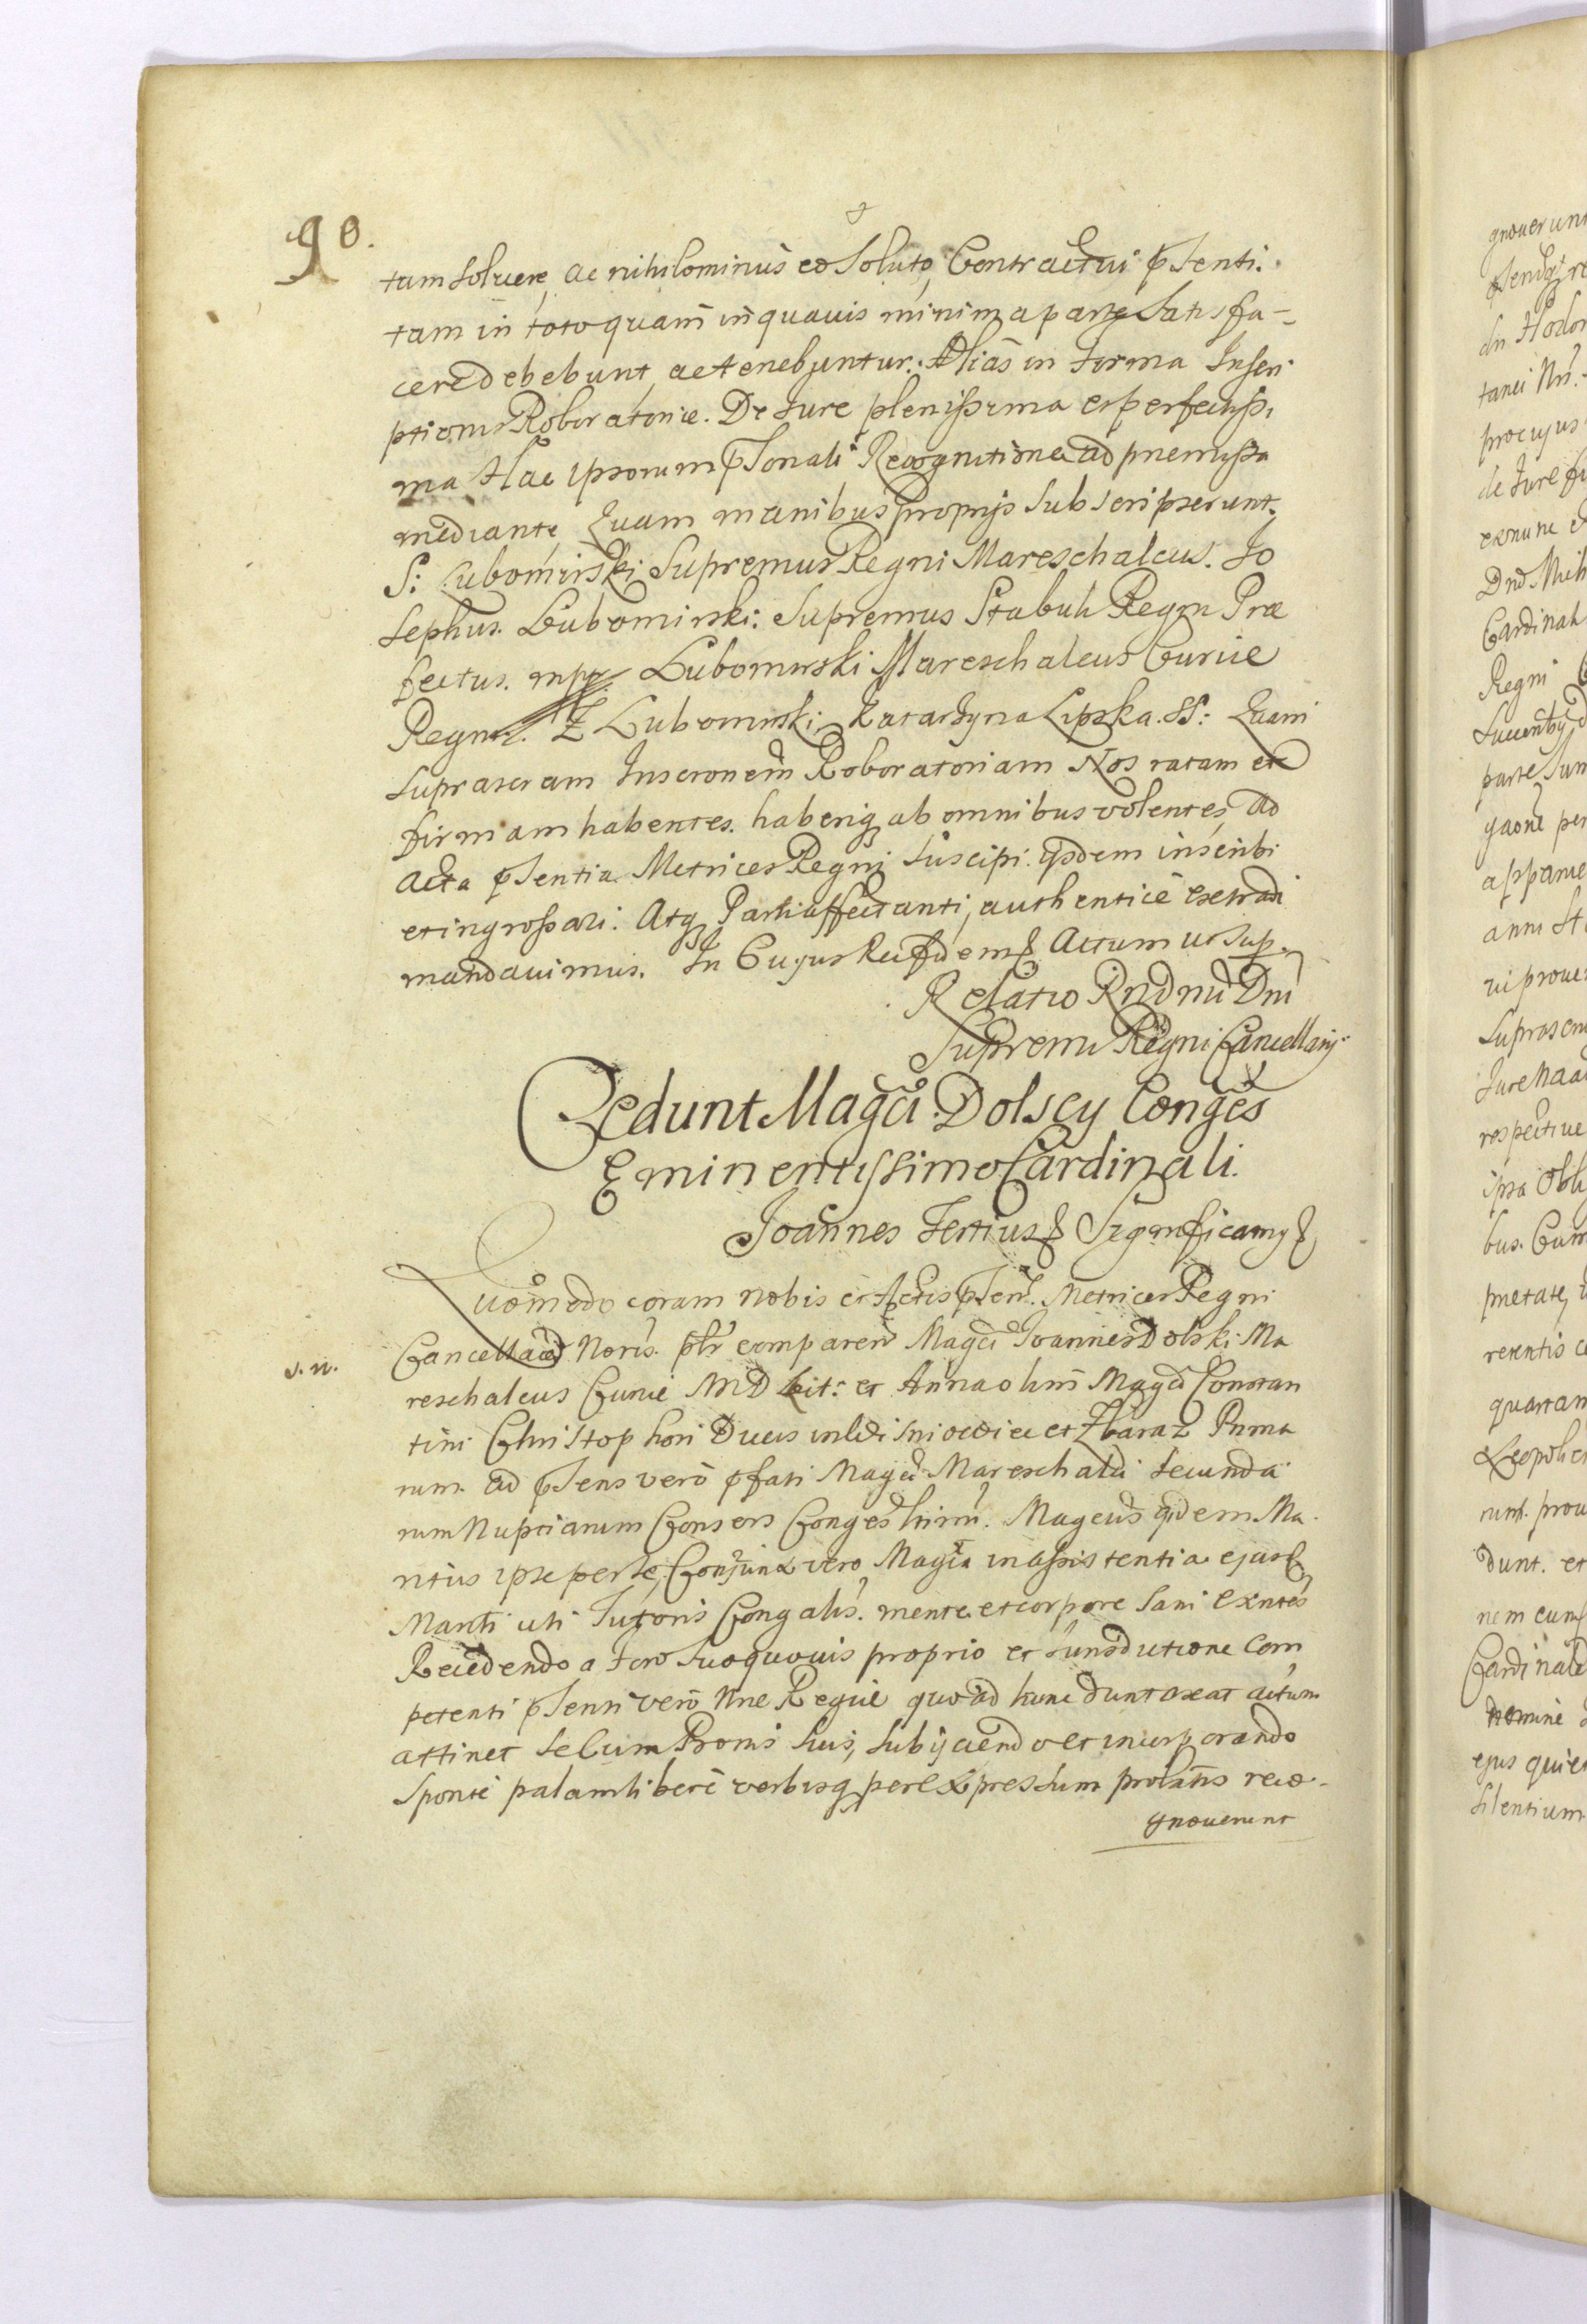 90.
tam soluere, ac nihilominus eo Soluto, Contractui pſenti.
tam in toto quam in quavis minima parte Satisfa-
cere debebunt, ac tenebuntur. Alias in forma Inscri
ptionis Roboratoriæ. De Iure plenissima et perfectissi
ma Hac ipsorum pſonali Recognitione ad præmissa
mediante, Quam manibus proprijs Subscripserunt.
S: Lubomirski Supremus Regni Mareschalcus. Jo
sephus. Lubomirski: Supremus Stabuli Regni Præ
fectus. mpp Lubomirski Mareschalcus Curiæ
Regni. Z Lubomirski. Katarzyna Lipska. SS: Quam
suprascram Inscronem Roboratoriam Nos ratam et
firmam habentes. haberiq ab omnibus volentes, ad
Acta pſentia Metrices Regni Suscipi. ijsdem inscribi
et ingrossari. Atq Parti affectanti, authenticè extradi
mandavimus. In Cujus Rei fidem Actum ut sup.
Relatio Rndmi Dni
Supremi Regni Cancellarij
Cedunt Magci Dolscy Conges
Eminentissimo Cardinali.
Joannes Tertius Significamq
Quomodo coram nobis et Actis pſen. Metrices Regni
s. n.
Cancellariæ Noris. plr comparen Magci Joannes Dolski Ma
reschalcus Curiæ MD Lit: et Anna olim Magci Constan
tini Christophori Ducis in Wisniowiec et Zbaraz Prima
rum. ad pſens verò pfati Magci Mareschalci secunda
rum Nuptiarum Consors Conges hirmi. Magcus qdem Ma
ritus ipse per se, Conjunx vero Magca in assistentia ejusd
Mariti uti Tutoris Congalis. mente et corpore sani exntes
Recedendo a foro suo quovis proprio et Iurisdictione Com
petenti pſenti verò Nræ Regiæ quo ad hunc duntaxat actum
attinet se cum Bonis suis, subijciendo et incorporando
Sponte palam liberè verbisq per expressum prolatis reco-
gnoverunt